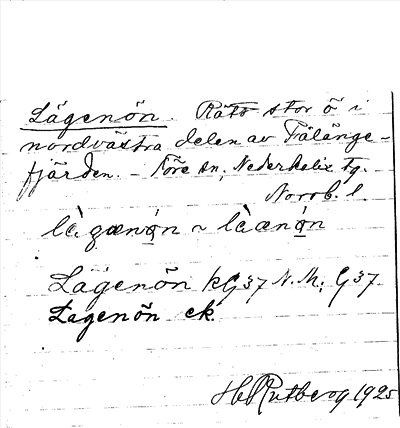 Lägenön. Rätt stor ö i
nordvästra delen av Fålänge-
fjärden. – Töre sn, Nederkalix tg.
Norrb. l.
lägænǫ́n ~ làænǫ́n
Lägenön kG37 N.M.; G37
Lagenön ek.
H Rutberg 1925